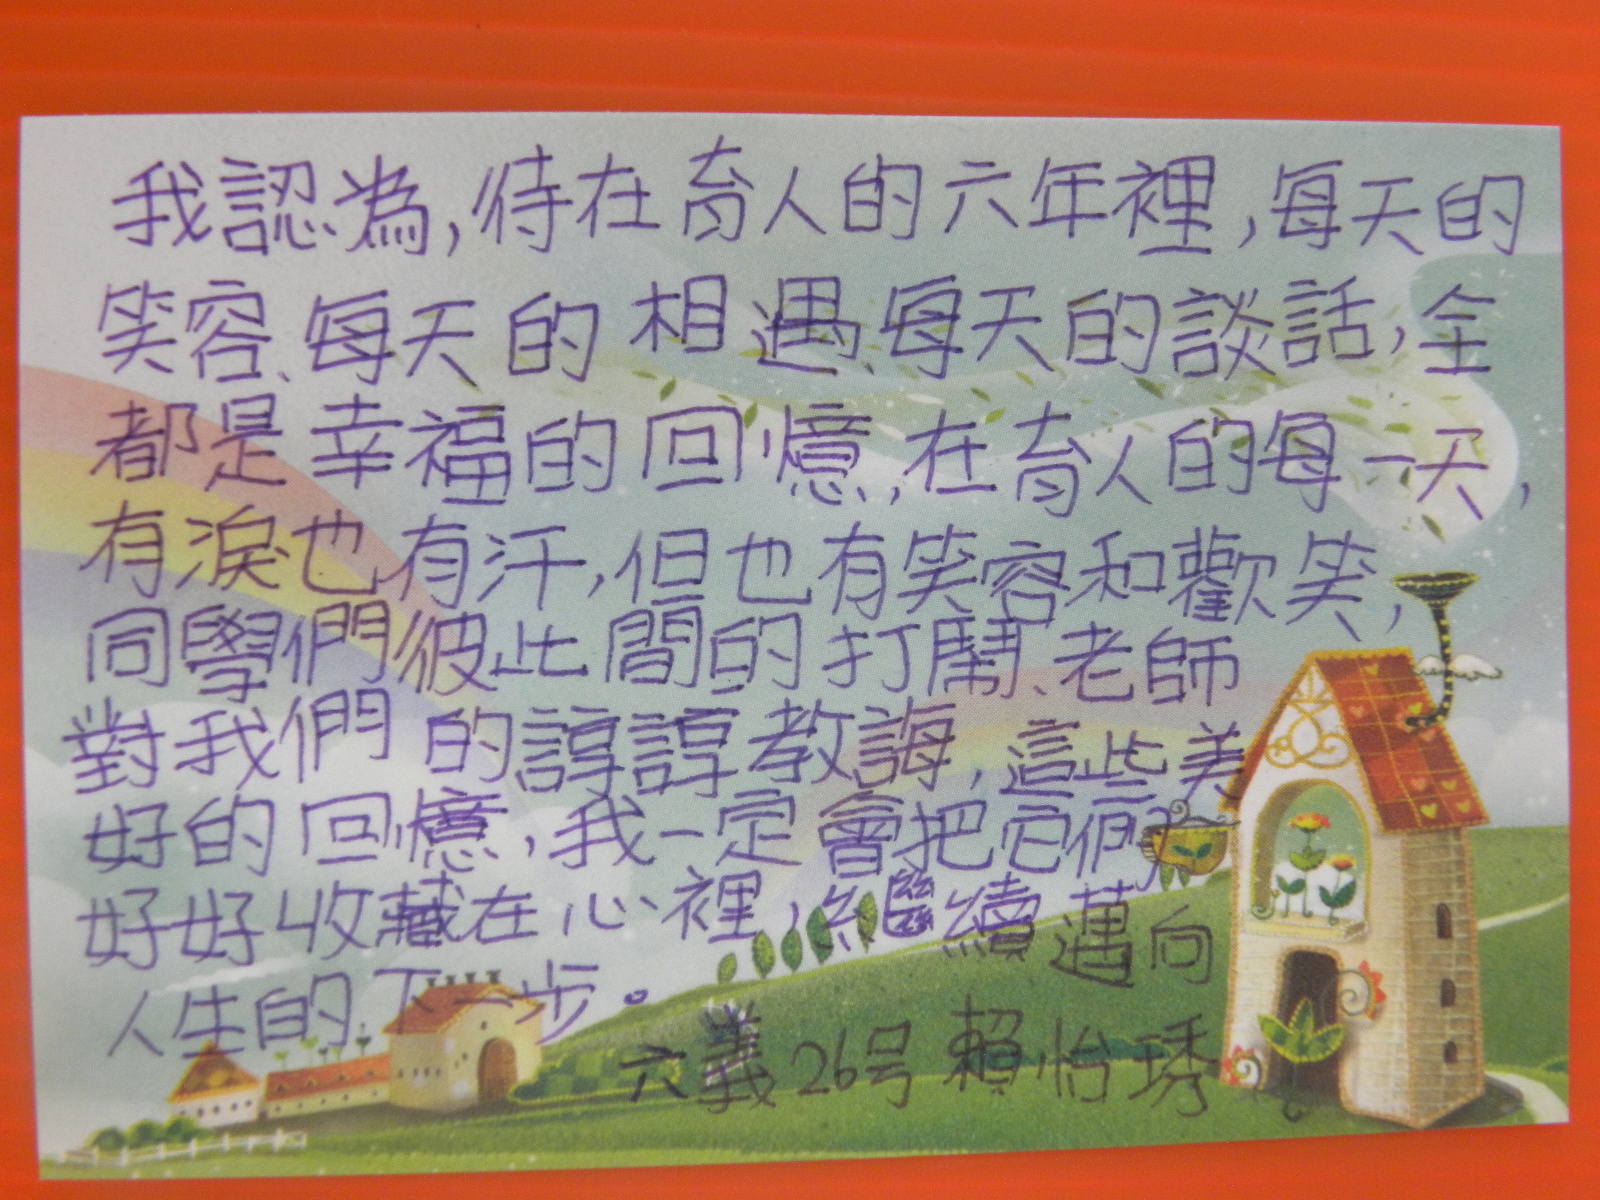 我認為,待在育人的六年裡,每天的
笑容、每天的相遇、每天的談話,全
都是幸福的回憶,在育人的每一天,
有淚也有汗,但也有笑容和歡笑,
同學們彼此間的打鬧、老師
對我們的諄諄教誨,這些美
好的回憶,我一定會把它們
好好收藏在心裡,繼續邁向
人生的下一步。
六義26号賴怡琇